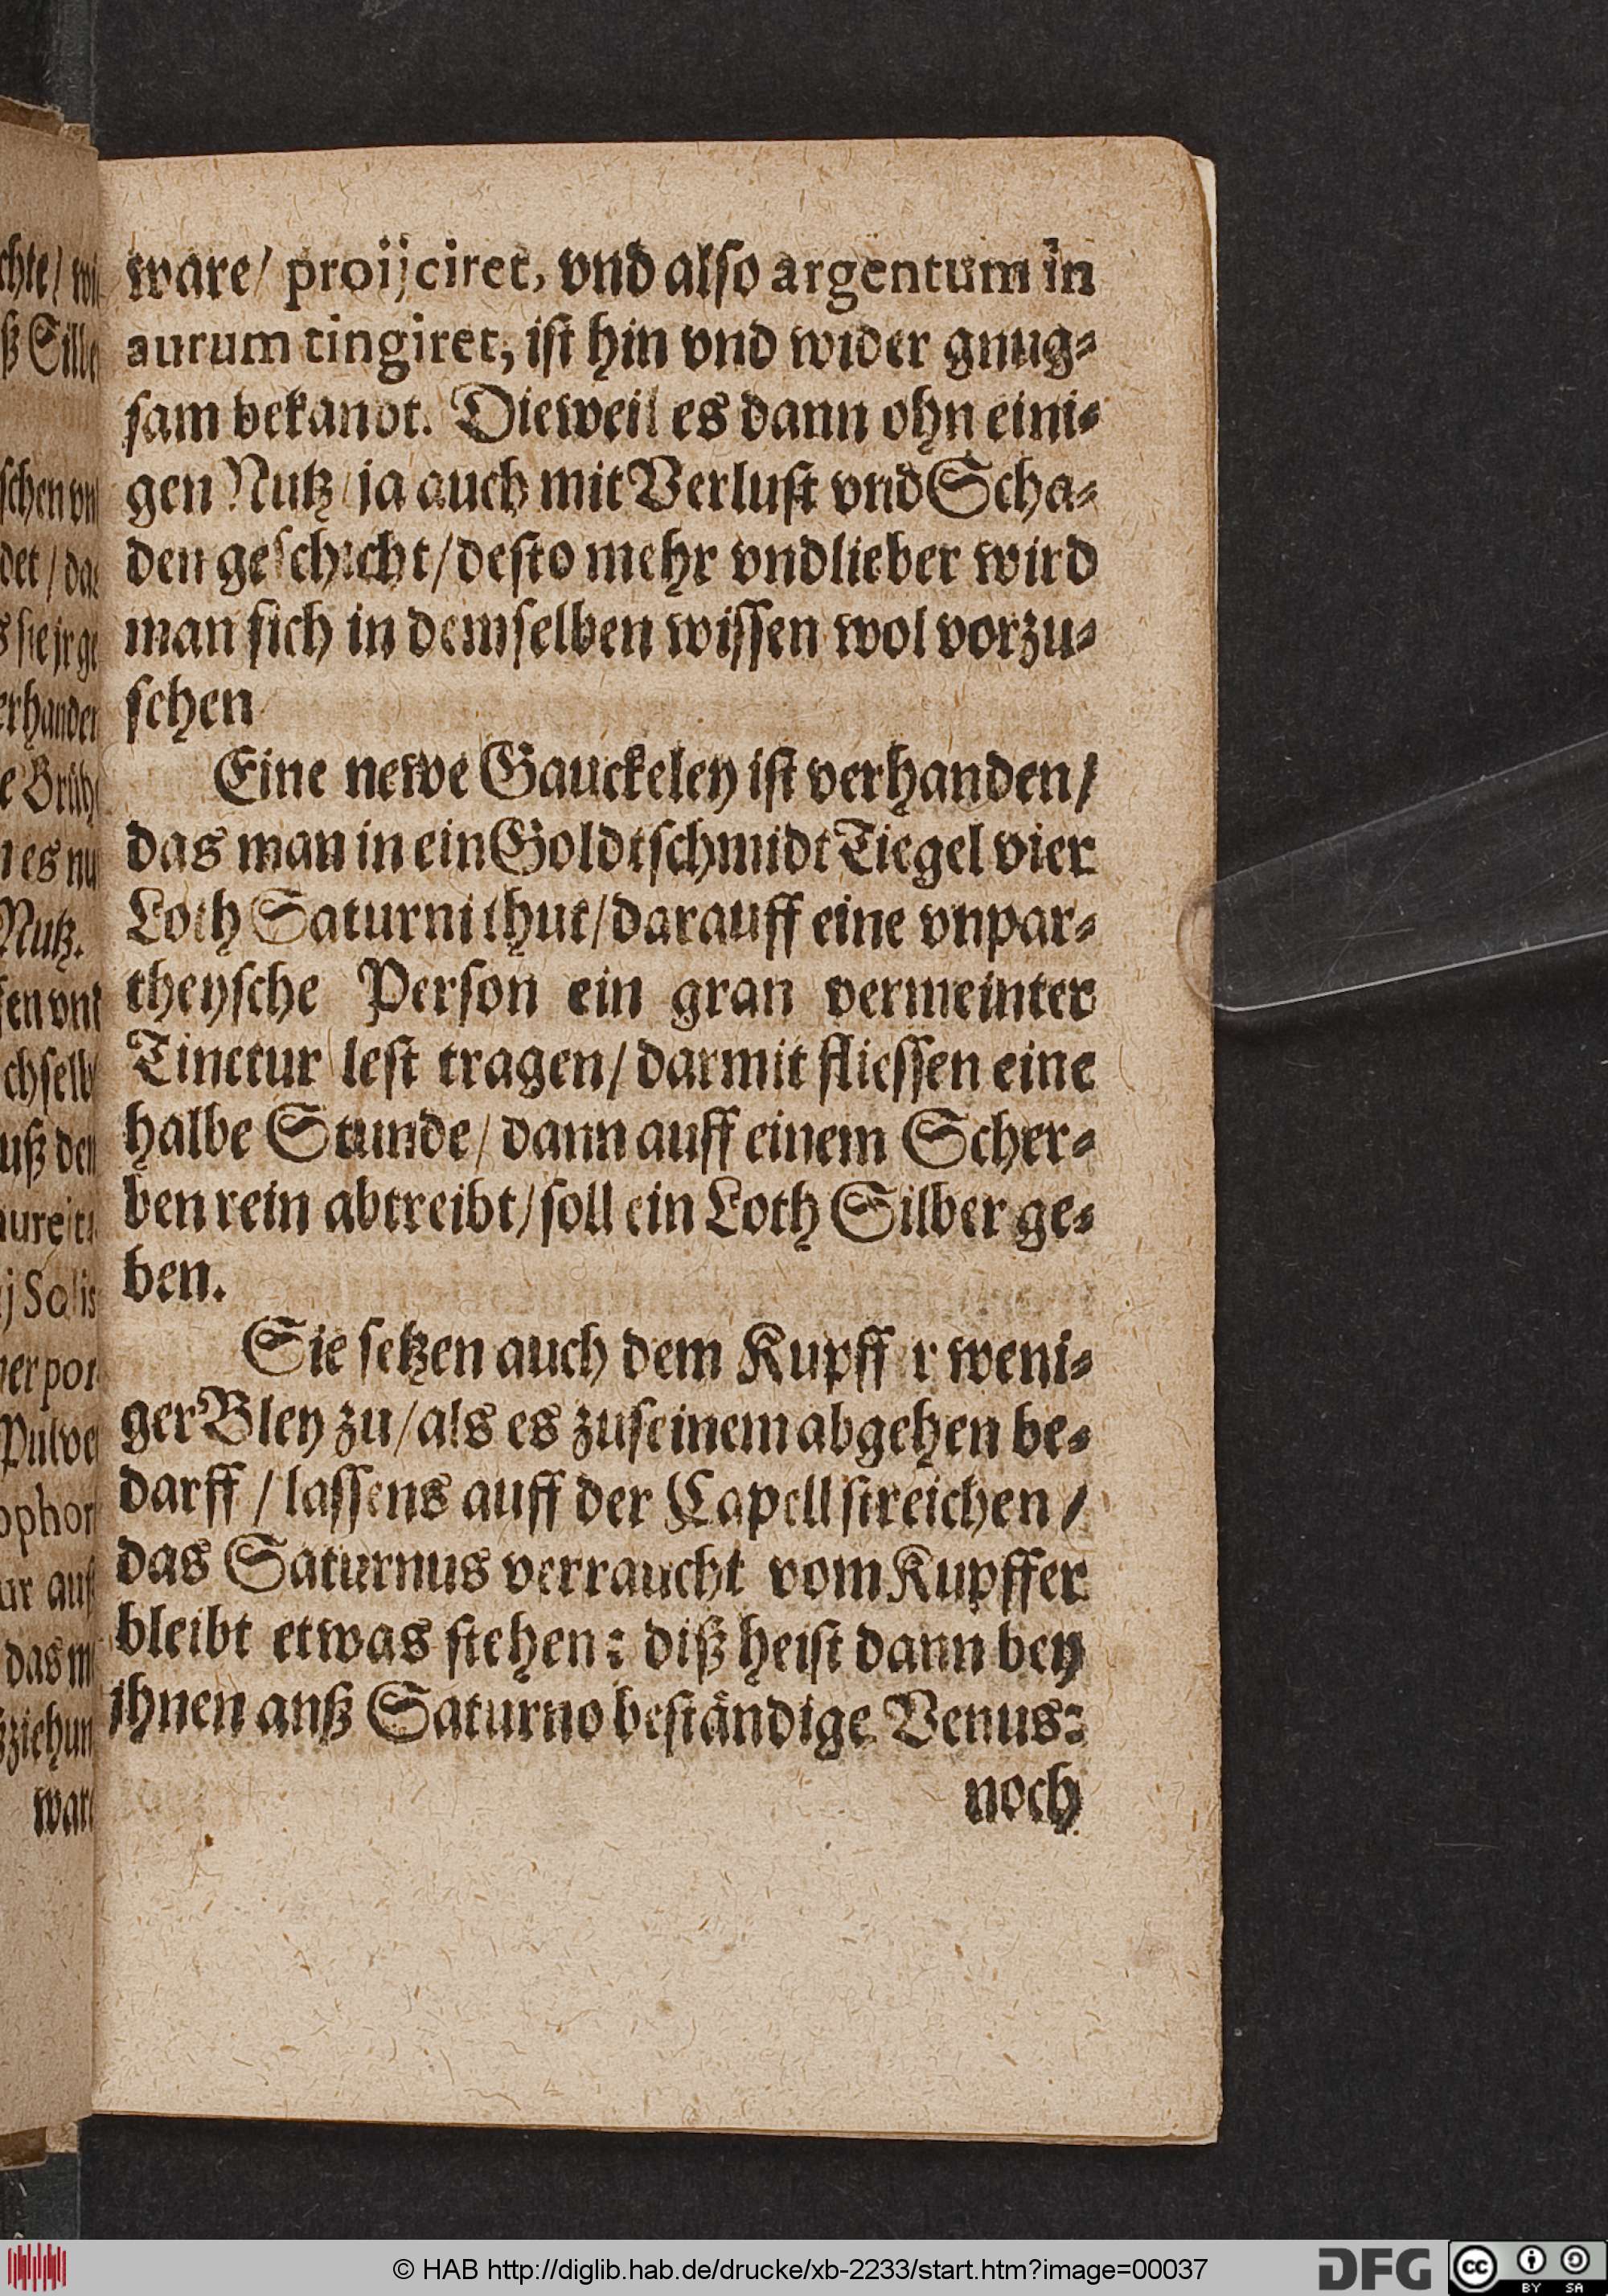 ware/ proijciret, vnd also argentum in
aurum tingiret, ist hin vnd wider gnug-
sam bekandt. Dieweil es dann ohn eini-
gen Nutz/ ja auch mit Verlust vnd Scha-
den geschicht/ desto mehr vnd lieber wird
man sich in demselben wissen wol vorzu-
sehen
Eine newe Gauckeley ist verhanden/
das man in ein Goldtschmidt Tiegel vier
Loth Saturni thut/ darauff eine vnpar-
theysche Person ein gran vermeinter
Tinctur lest tragen/ darmit fliessen eine
halbe Stunde/ dann auff einem Scher-
ben rein abtreibt/ soll ein Loth Silber ge-
ben.
Sie setzen auch dem Kupff r weni-
ger Bley zu/ als es zu seinem abgehen be-
darff / lassens auff der Capell streichen/
das Saturnus verraucht vom Kupffer
bleibt etwas stehen: diß heist dann bey
ihnen anß Saturno beständige Venus:
noch
© HAB http://diglib.hab.de/drucke/xb-2233/start.htm?image=00037
DFG
cc
BY SA